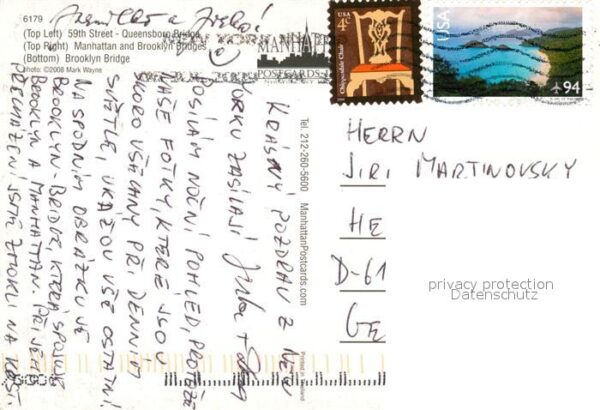 6179
(Top Left) 59th Street - Queensboro Bridge
(Top Right) Manhattan and Brooklyn Bridges
(Bottom) Brooklyn Bridge
photo: ©2008 Mark Wayne
NEW YORK
MANHATTAN
POSTCARDS
USA
4¢
Chippendale Chair
USA
94
Tel. 212-260-5600 ManhattanPostcards.com
Printed in Thailand
KRÁSNÝ POZDRAV Z NEW
YORKU ZASÍLAJÍ
POSÍLÁM NOČNÍ POHLED, PROTOŽE
NAŠE FOTKY, KTERÉ JSOU
SKORO VŠECHNY PŘI DENNÍM
SVĚTLE, UKÁŽOU VŠE OSTATNÍ.
NA SPODNÍM OBRÁZKU JE
BROOKLYN-BRIDGE, KTERÁ SPOJUJE
BROOKLYN A MANHATTAN. PŘI JEHO
PŘECHÁZENÍ JSME ZMOKLI NA KOST.
HERRN
JIRI MARTINOVSKY
HE
D-61
GE
privacy protection
Datenschutz